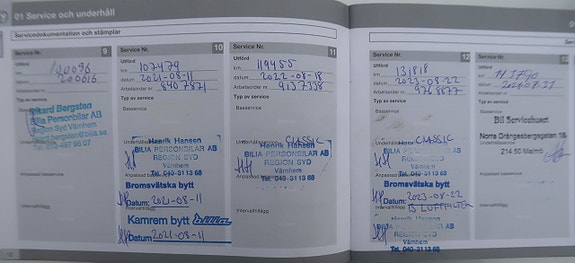 01 Service och underhåll
Servicedokumentation och stämplar
Service Nr. 9
Utförd
km 100096
datum 200616
Arbetsorder nr
Typ av service
Basservice
Rikard Bergsten
Bilia Personbilar AB
Region Syd Värnhem
Service Nr. 10
Utförd
km 107479
datum 2021-08-11
Arbetsorder nr 8407871
Typ av service
Basservice
Henrik Hansen
BILIA PERSONBILAR AB
REGION SYD
Värnhem
Tel. 040-313 68
Bromsvätska bytt
Datum: 2021-08-11
Kamrem bytt
Datum 2021-08-11
Service Nr. 11
Utförd
km 119455
datum 2022-08-18
Arbetsorder nr 9137338
Typ av service
Basservice
CLASSIC
Henrik Hansen
BILIA PERSONBILAR AB
REGION SYD
Värnhem
Tel. 040-313 68
Intervalltillägg
Service Nr. 12
Utförd
km 131818
datum 2023-08-22
Arbetsorder nr 9768877
Typ av service
Basservice
CLASSIC
Henrik Hansen
BILIA PERSONBILAR AB
REGION SYD
Värnhem
Tel. 040-313 68
Bromsvätska bytt
Datum: 2023-08-22
Intervalltillägg
BILIA PERSONBILAR AB
REGION SYD
Värnhem
Tel. 040-313 68
Service Nr.
Utförd
km
datum
Arbetsorder nr
Typ av service
Basservice
Bil Servicehuset
Norra Grängesbergsgatan
214 50 Malmö
Intervalltillägg